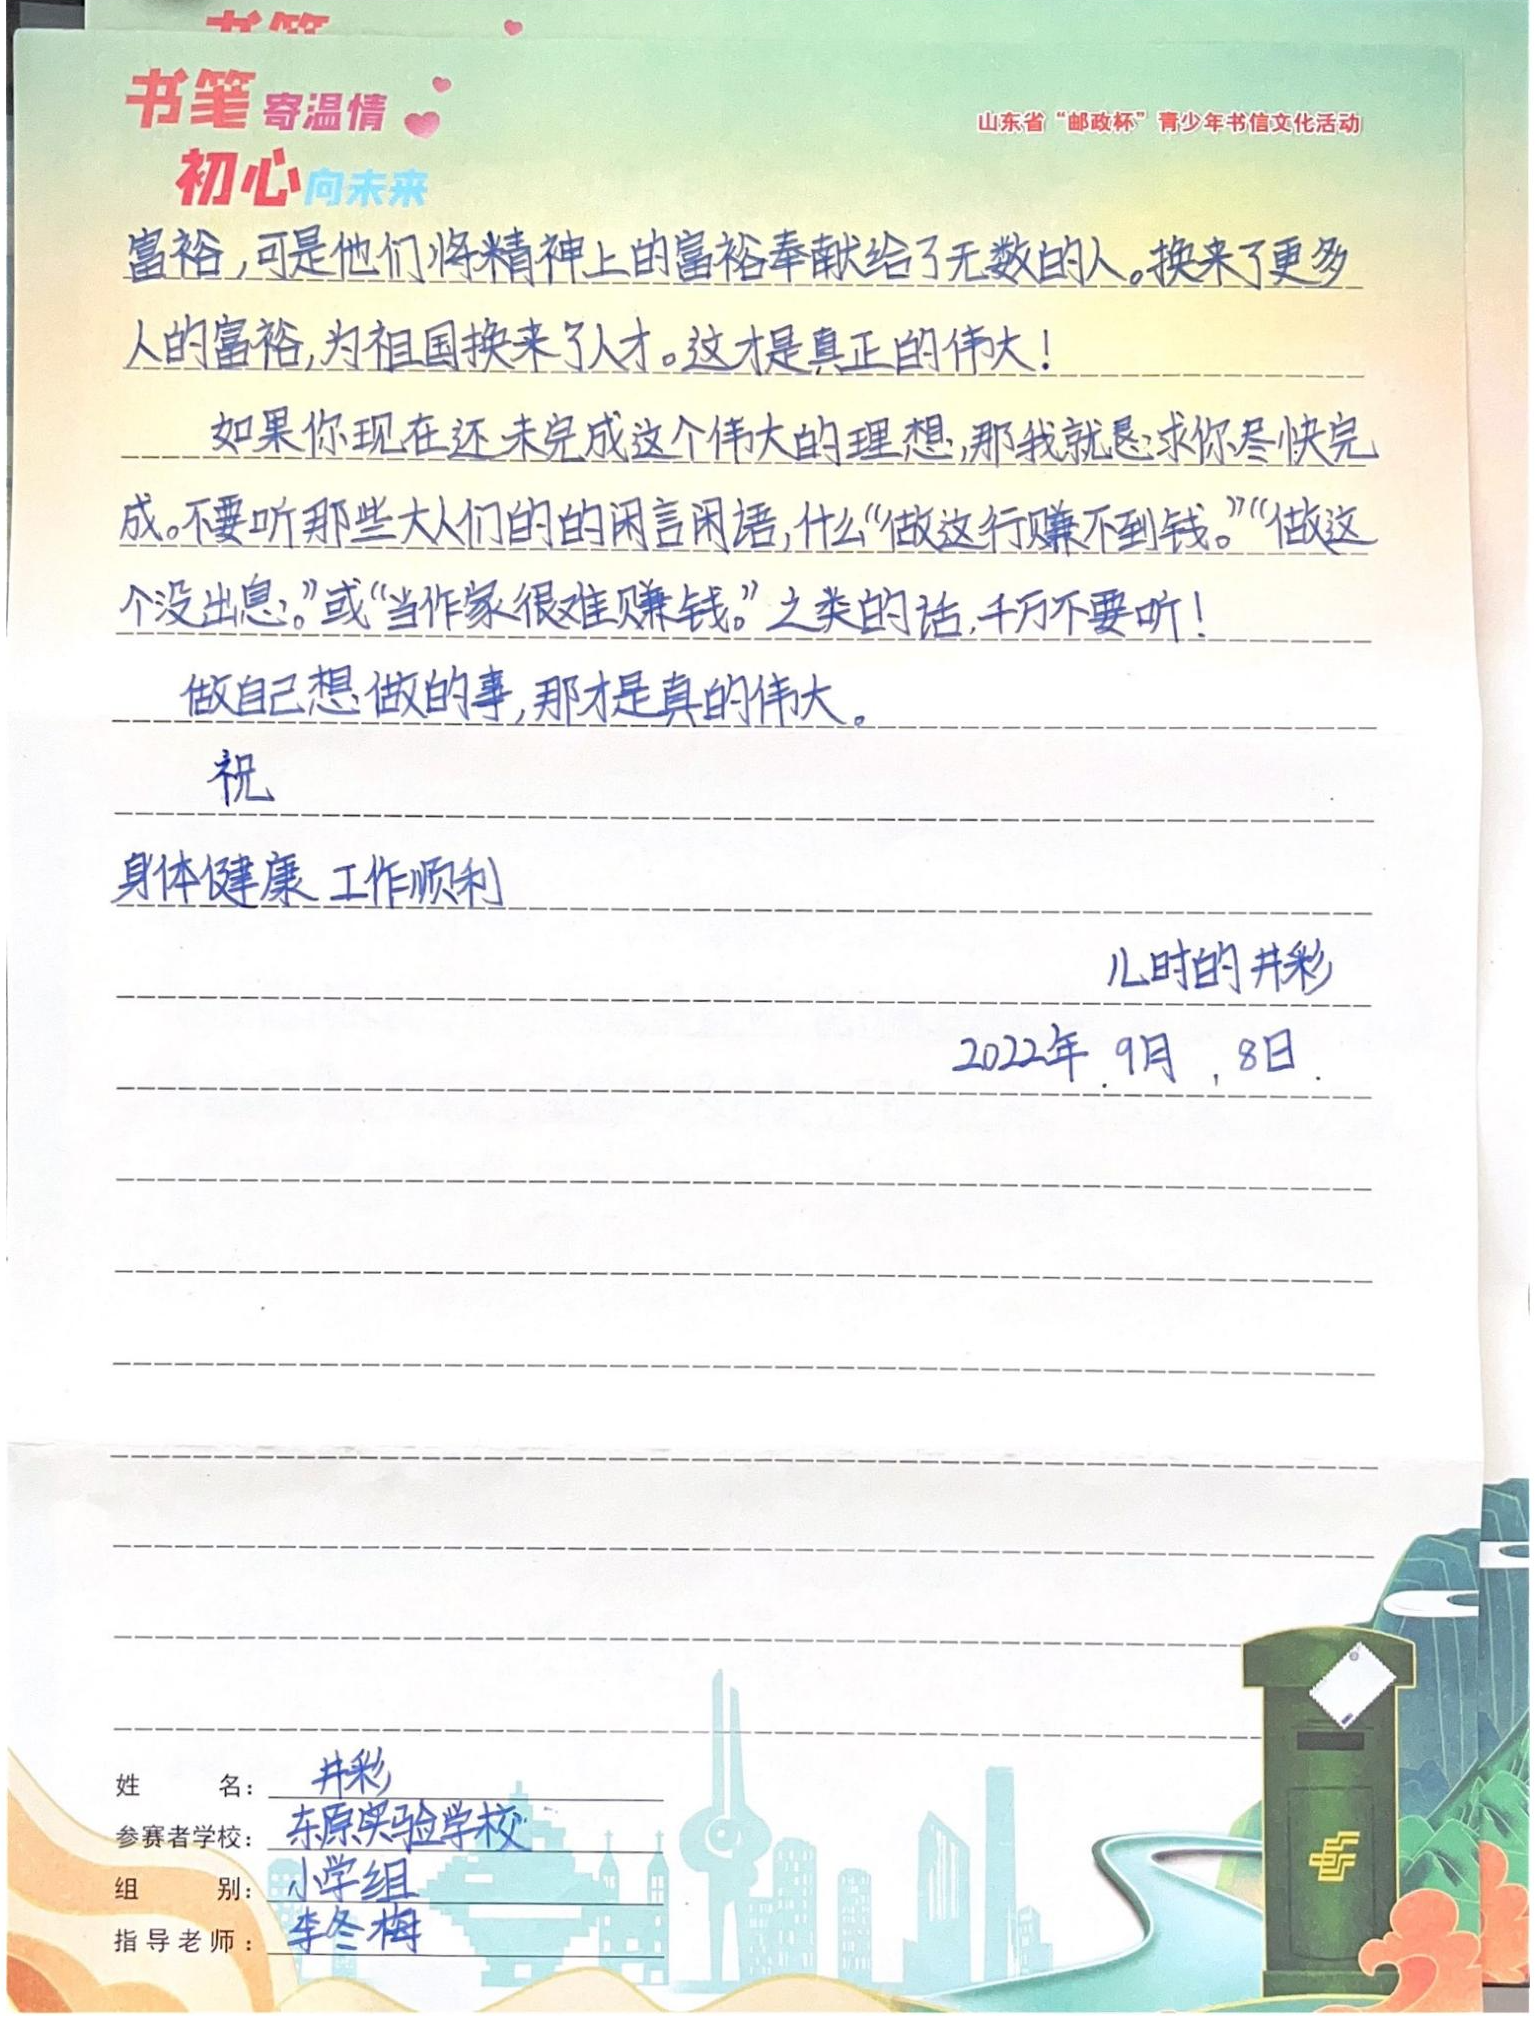 书笔
书笔寄温情
初心向未来
山东省“邮政杯”青少年书信文化活动
富裕,可是他们将精神上的富裕奉献给了无数的人。换来了更多
人的富裕,为祖国换来了人才。这才是真正的伟大!
如果你现在还未完成这个伟大的理想,那我就恳求你尽快完
成。不要听那些大人们的的闲言闲语,什么“做这行赚不到钱。”“做这
个没出息。”或“当作家很难赚钱。”之类的话,千万不要听!
做自己想做的事,那才是真的伟大。
祝
身体健康 工作顺利
儿时的井彩
2022年.9月,8日.
姓名: 井彩
参赛者学校: 东原实验学校
组别: 小学组
指导老师: 李冬梅